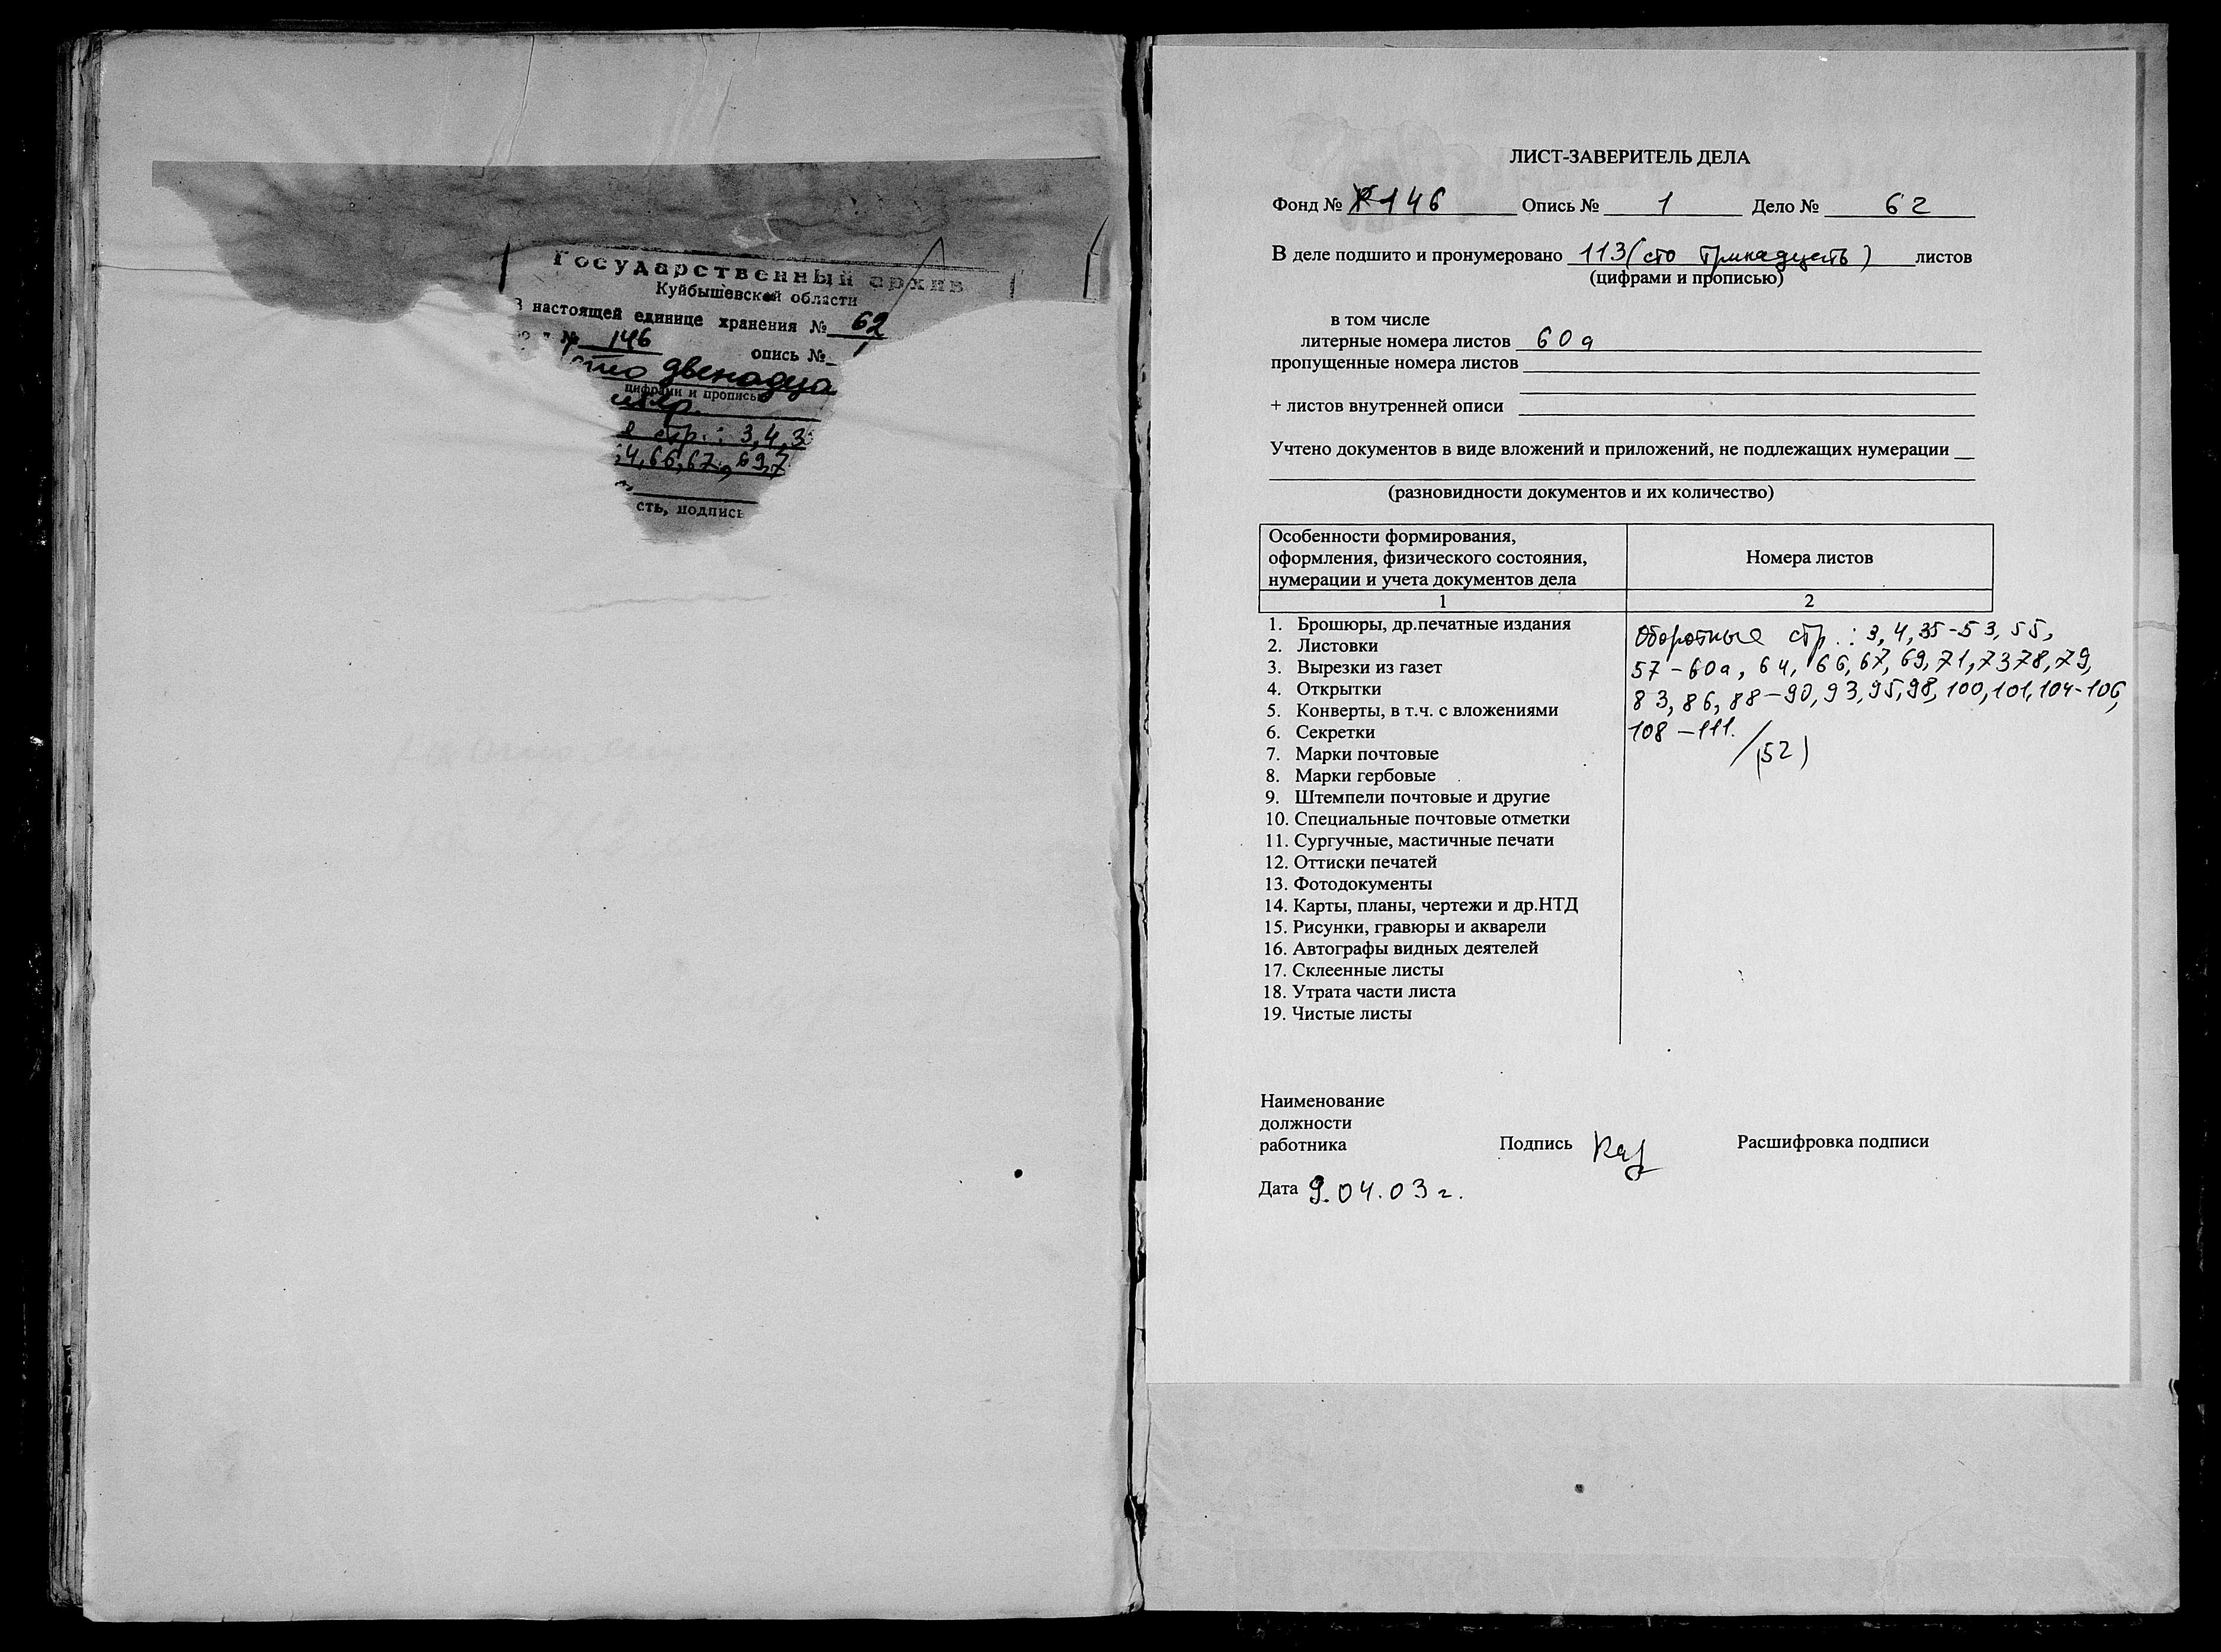 Государственный архив
Куйбышевской области
В настоящей единице хранения № 62
№ 146 опись №
сто двенадца
цифрами и прописью
стр.: 3, 4, 3
4, 66, 67, 69, 7
сть, подпись
ЛИСТ-ЗАВЕРИТЕЛЬ ДЕЛА
Фонд № 146 Опись № 1 Дело № 62
В деле подшито и пронумеровано 113 (сто тринадцать) листов
(цифрами и прописью)
в том числе
литерные номера листов 60а
пропущенные номера листов
+ листов внутренней описи
Учтено документов в виде вложений и приложений, не подлежащих нумерации
(разновидности документов и их количество)
Особенности формирования,
оформления, физического состояния,
нумерации и учета документов дела
Номера листов
1 2
1. Брошюры, др.печатные издания
2. Листовки
3. Вырезки из газет
4. Открытки
5. Конверты, в т.ч. с вложениями
6. Секретки
7. Марки почтовые
8. Марки гербовые
9. Штемпели почтовые и другие
10. Специальные почтовые отметки
11. Сургучные, мастичные печати
12. Оттиски печатей
13. Фотодокументы
14. Карты, планы, чертежи и др.НТД
15. Рисунки, гравюры и акварели
16. Автографы видных деятелей
17. Склеенные листы
18. Утрата части листа
19. Чистые листы
Оборотные стр.: 3, 4, 35-53, 55,
57-60а, 64, 66, 67, 69, 71, 73 78, 79,
83, 86, 88-90, 93, 95, 98, 100, 101, 104-106,
108-111.
(52)
Наименование
должности
работника Подпись Расшифровка подписи
Дата 9.04.03 г.